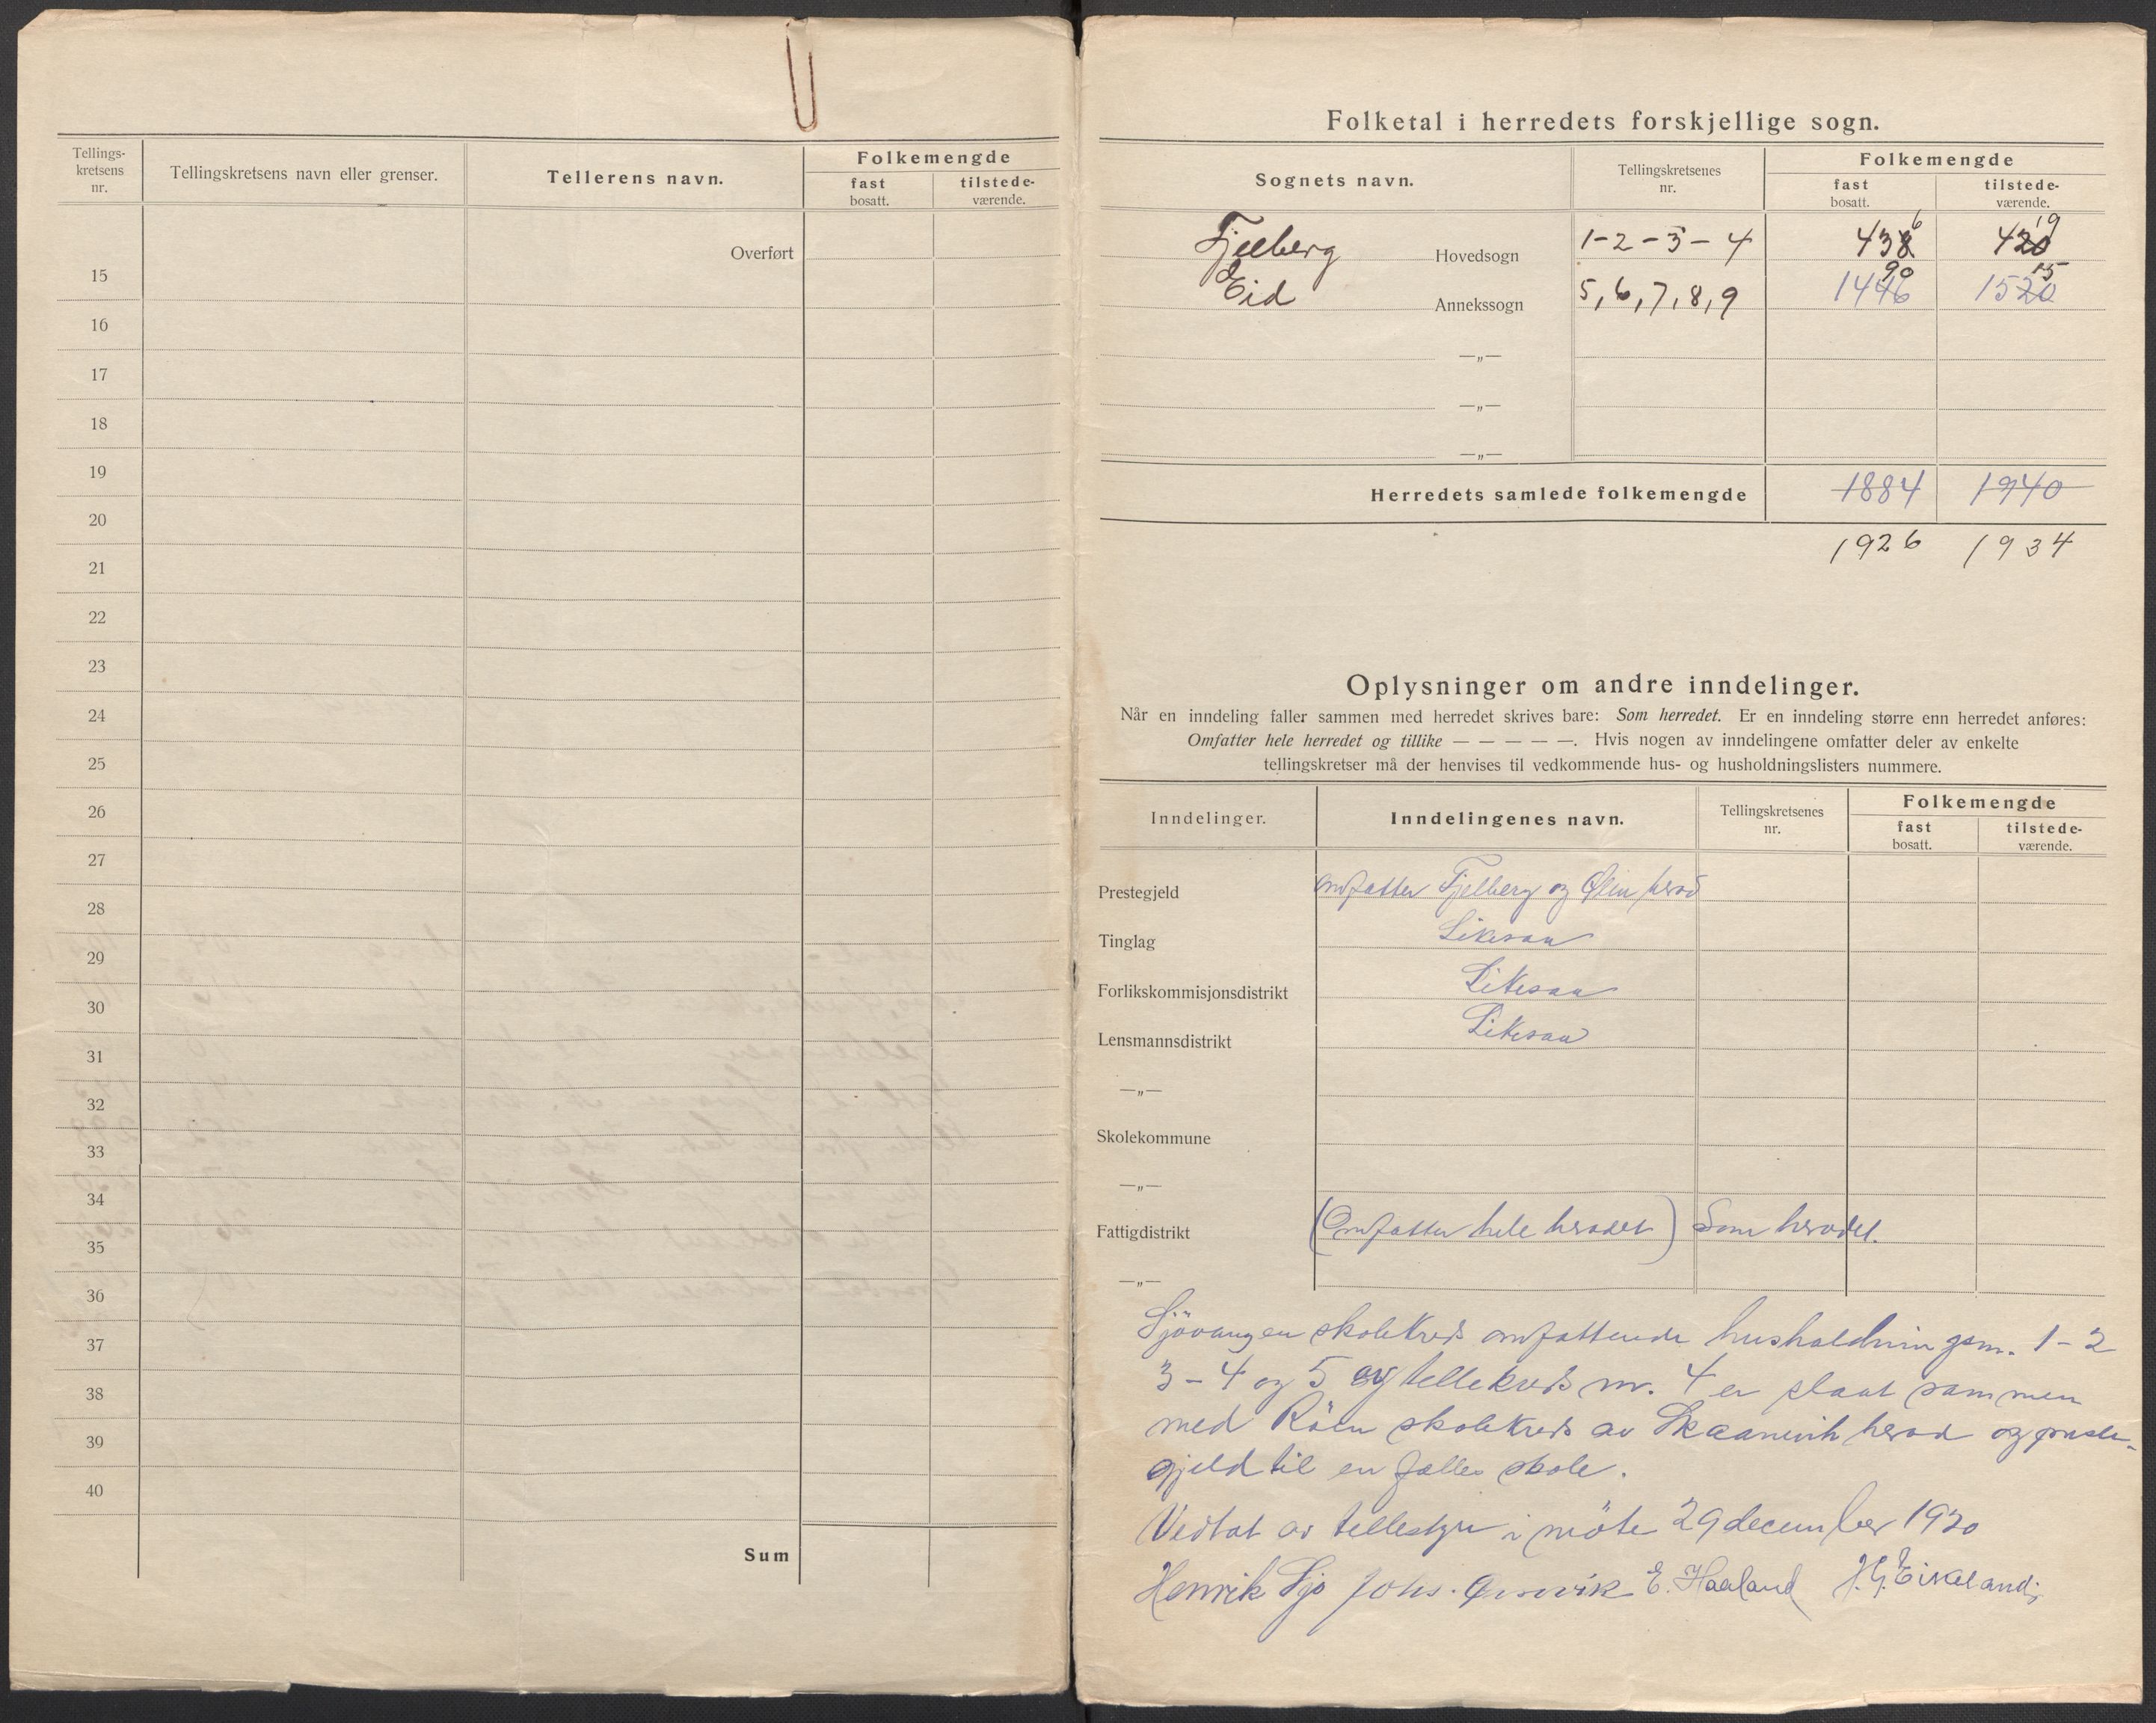 Tellings-
kretsens
nr.
Tellingskretsens navn eller grenser.
Tellerens navn.
Folkemengde
fast
bosatt.
tilstede-
værende.
Overført
15
16
17
18
19
20
21
22
23
24
25
26
27
28
29
30
31
32
33
34
35
36
37
38
39
40
Sum
Folketal i herredets forskjellige sogn.
Sognets navn.
Tellingskretsenes
nr.
Folkemengde
fast
bosatt.
tilstede-
værende.
Fjelberg Hovedsogn 1-2-3-4 4386 42019
Eid Annekssogn 5,6,7,8,9 144690 152015
—„—
—„—
—„—
Herredets samlede folkemengde 1884 1940
1926 1934
Oplysninger om andre inndelinger.
Når en inndeling faller sammen med herredet skrives bare: Som herredet. Er en inndeling større enn herredet anføres:
Omfatter hele herredet og tillike — — — — —. Hvis nogen av inndelingene omfatter deler av enkelte
tellingskretser må der henvises til vedkommende hus- og husholdningslisters nummere.
Inndelinger.
Inndelingenes navn.
Tellingskretsenes
nr.
Folkemengde
fast
bosatt.
tilstede-
værende.
Prestegjeld omfatter Fjelberg og Ølen herad
Tinglag Likesaa
Forlikskommisjonsdistrikt Likesaa
Lensmannsdistrikt Likesaa
—„—
Skolekommune
—„—
Fattigdistrikt (Omfatter hele heradet) Som heradet.
—„—
skolekreds omfattende 1-2
3-4 og 5 av tellekreds nr. 4 er slaat sammen
med skolekreds av Skaanevik herad og preste-
gjeld til en fælles skole.
Vedtat av tellestyre i möte 29 december 1920
Henrik Sjo Johs. E. Haaland J. G. Eikeland